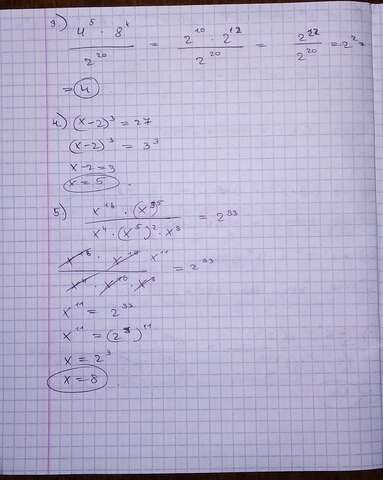 3.) 4⁵ · 8⁴ / 2²⁰ = 2¹⁰ · 2¹² / 2²⁰ = 2²² / 2²⁰ = 2² =
= 4
4.) (x-2)³ = 27
(x-2)³ = 3³
x-2 = 3
x = 5 .
5) x¹³ · (x³)⁵ / x⁴ · (x⁵)² · x³ = 2³³
x¹⁸ · x¹⁰ x¹¹ / x⁴ · x¹⁰ · x³ = 2³³
x¹¹ = 2³³
x¹¹ = (2³)¹¹
x = 2³
x = 8